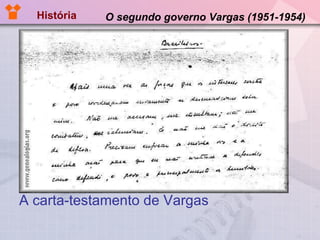 História
O segundo governo Vargas (1951-1954)
Brasileiros.
Mais uma vez as forças que os interesses contra
o povo coordenaram novamente se desencadeiam sobre
mim. Não me acusam, me insultam; não me
combatem, caluniam. E não me dão o direito
de defesa. Precisam a minha voz e a
minha para que eu não continue a defender
como defendi, o povo e principalmente os humildes.
www.genealogias.org
A carta-testamento de Vargas